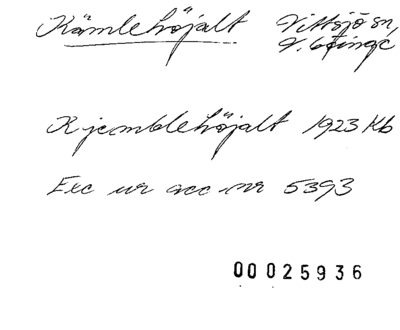 Kämlehöjalt Vittsjö sn,
V. Göinge
Kjemblehöjalt 1923 Kb
Exc ur acc nr 5393
00025936